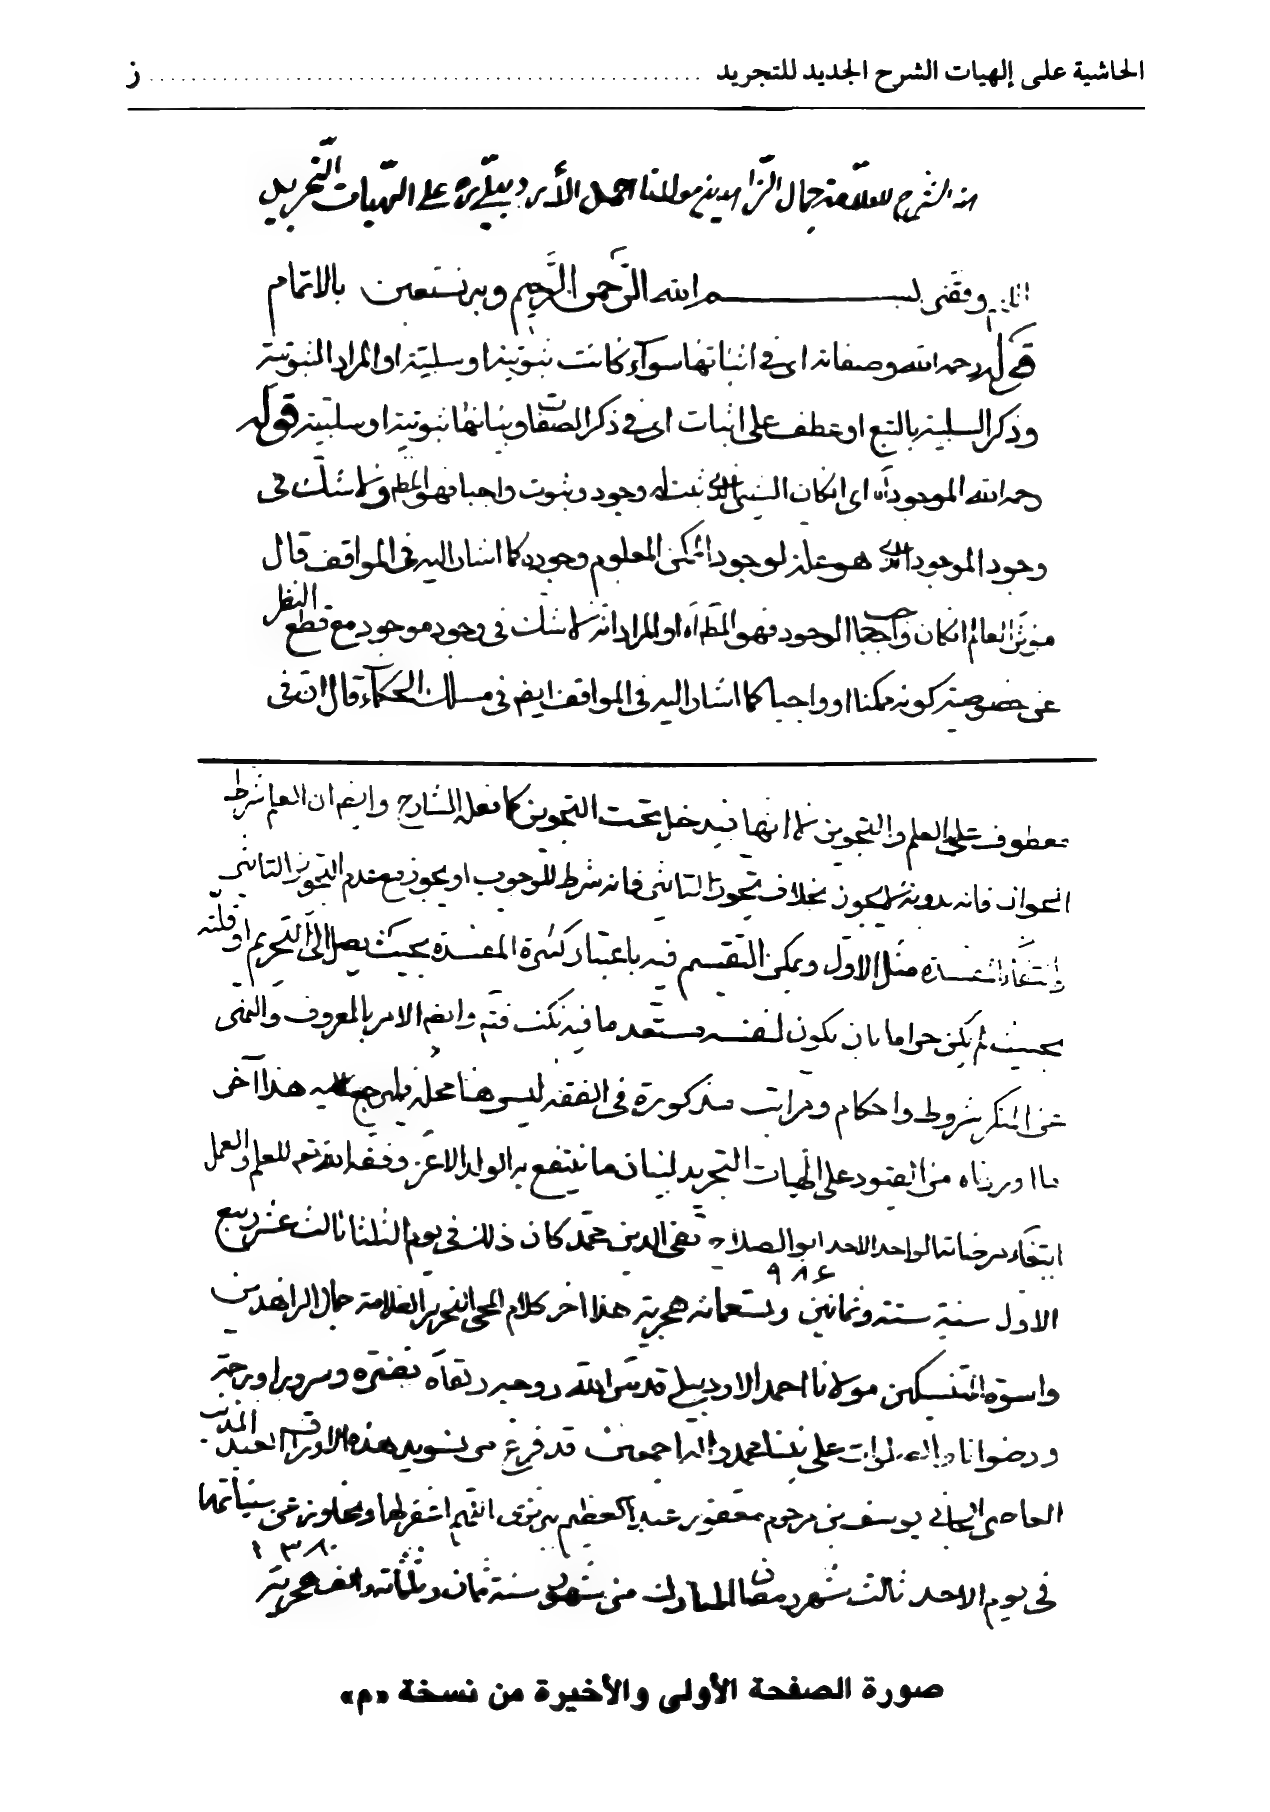 الحاشية على إلهيات الشرح الجديد للتجريد ........ ز
هذا الشرح للعلامة جمال الزاهدين مولانا احمد الأردبيلي ره على الهيات التجريد
وفقني بسم الله الرحمن الرحيم وبه نستعين بالاتمام
قوله رحمه الله وصفاته اى في اثباتها سوآء كانت ثبوتية او سلبية او المراد الثبوتية
وذكر السلبية بالتبع او عطف على اثبات اى في ذكر الصفات وبيانها ثبوتية او سلبية قوله
رحمه الله الموجود اه اى انكان الشئ الذى ثبت له وجود وثبوت واجبا فهو المط ولا شك في
وجود الموجود الذى هو علة لوجود الممكن المعلوم وجوده كما اشار اليه في المواقف قال
مؤثر العالم انكان واجب الوجود فهو المط اه او المراد انه لا شك في وجود موجود مع قطع النظر
عن خصوصية كونه ممكنا او واجبا كما اشار اليه في المواقف ايض في مسلك الحكماء قال ان في
معطوف على العلم والتجويز لا انها فيدخل تحت التجويز كما فعله الشارح وايضا ان العلم شرط
الجواز فانه بدونه لا يجوز بخلاف تجويز التاثير فانه شرط للوجوب او يجوز مع عدم التجويز التاثير
وانتفاء المفسدة مثل الاول ويمكن التقسيم فيه باعتبار كثرة المفسدة بحيث يصل الى التحريم او قلته
بحيث لم يكن حراما بان يكون لنفسه مستعد ما فيه نكت فتم وايض الامر بالمعروف والنهى
عن المنكر شروط واحكام ومراتب مذكورة في الفقه ليس هنا محله فليرجع اليه هذا آخر
ما اوردناه من القيود على الهيات التجريد لبيان ما ينتفع به الولد الاعز وفقه الله تعم للعلم والعمل
ابتغاء مرضاته الواحد الاحد ابو الصلاح تقي الدين محمد كان ذلك في يوم الثلثا ثالث عشر ربيع
٩٨٦
الاول سنة ستة وثمانين وتسعمائه هجرية هذا آخر كلام المحشي النحرير العلامة جمال الزاهدين
واسوة المتنسكين مولانا احمد الاردبيلي قدس الله روحه ولقاه نضرة وسرورا ورحمة
ورضوانا والصلوات على نبينا محمد واله اجمعين قد فرغ من تسويد هذه الاوراق العبد المذنب
العاصى الجانى يوسف بن مرحوم مغفور عبد العظيم اغفر لها وتجاوز عن سيئاتهما
١٣٠٨
في يوم الاحد ثالث شهر رمضان المبارك من شهور سنة ثمان وثلثمائة والف هجرية
صورة الصفحة الأولى والأخيرة من نسخة «م»